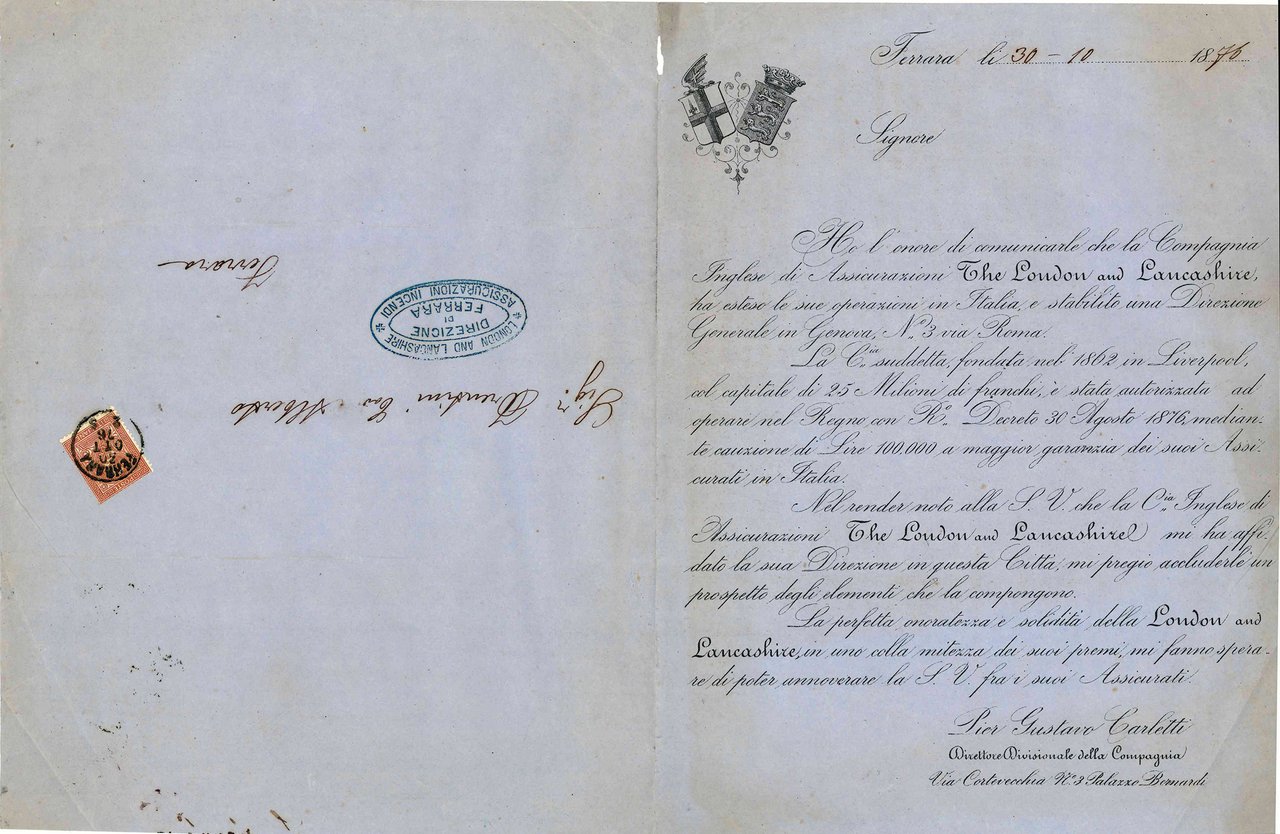 Ferrara li 30 - 10 1876
Signore
Ho l'onore di comunicarle che la Compagnia
Inglese di Assicurazioni The London and Lancashire,
ha esteso le sue operazioni in Italia, e stabilito una Direzione
Generale in Genova, N.° 3 via Roma.
La C.ia suddetta, fondata nel 1862 in Liverpool,
col capitale di 25 Milioni di franchi, è stata autorizzata ad
operare nel Regno con R.° Decreto 30 Agosto 1876, median-
te cauzione di Lire 100.000 a maggior garanzia dei suoi Assi-
curati in Italia.
Nel render noto alla S. V. che la C.ia Inglese di
Assicurazioni The London and Lancashire mi ha affi-
dato la sua Direzione in questa Città, mi pregio accluderle un
prospetto degli elementi che la compongono.
La perfetta onoratezza e solidità della London and
Lancashire, in uno colla mitezza dei suoi premi, mi fanno spera-
re di poter annoverare la S. V. fra i suoi Assicurati.
Pier Gustavo Carletti
Direttore Divisionale della Compagnia
Via Cortevecchia N.° 3 Palazzo Bernardi
Sig.r Alberto
Ferrara
LONDON AND LANCASHIRE
DIREZIONE
DI
FERRARA
ASSICURAZIONI INCENDI
FERRARA
20
OTT
76